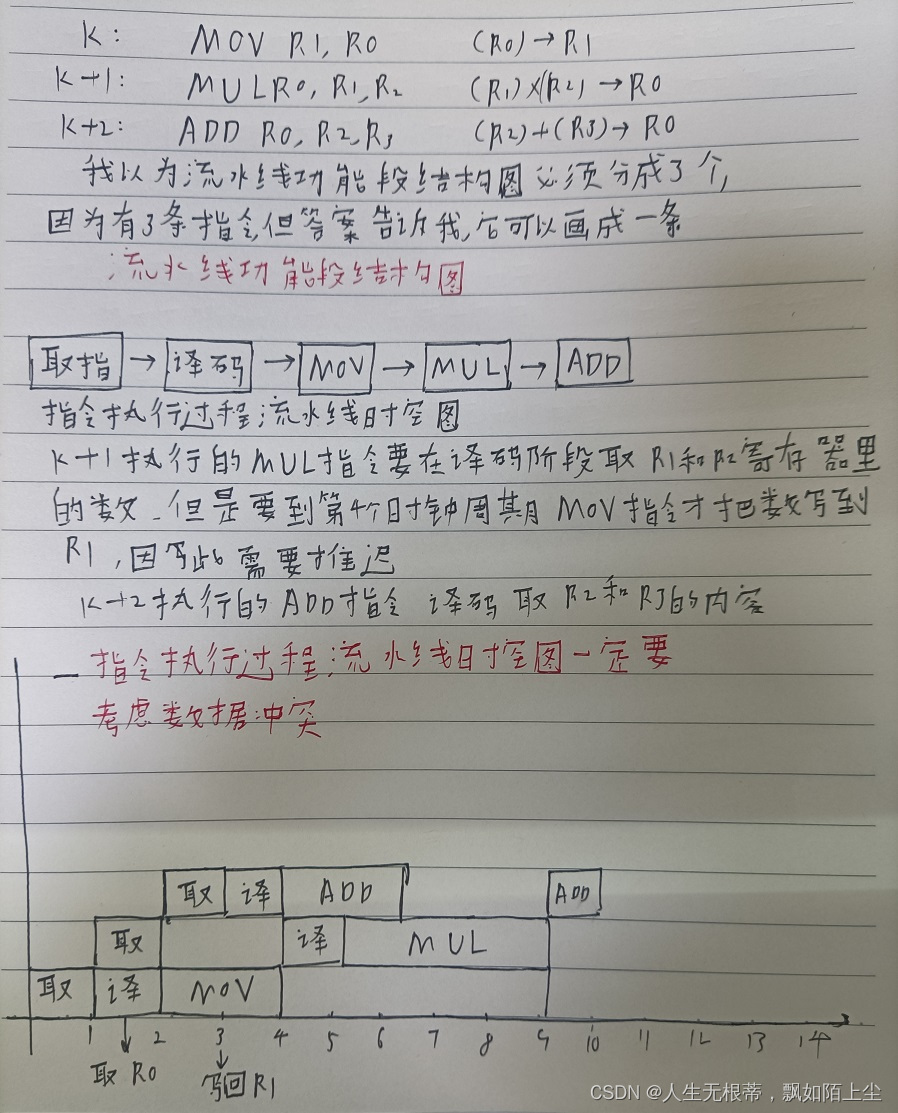 K: MOV R1, R0 (R0)→R1
K+1: MUL R0, R1, R2 (R1)×(R2)→R0
K+2: ADD R0, R2, R3 (R2)+(R3)→R0
我以为流水线功能段结构图必须分成了个,
因为有3条指令,但答案告诉我,它可以画成一条
流水线功能段结构图
取指 → 译码 → MOV → MUL → ADD
指令执行过程流水线时空图
K+1执行的MUL指令要在译码阶段取R1和R2寄存器里
的数.但是要到第4个时钟周期MOV指令才把数写到
R1,因为此需要推迟
K+2执行的ADD指令 译码 取R2和R3的内容
指令执行过程流水线时空图一定要
考虑数据冲突
取 译 ADD ADD
取 译 MUL
取 译 MOV
1 2 3 4 5 6 7 8 9 10 11 12 13 14
取R0 写回R1
CSDN @人生无根蒂,飘如陌上尘